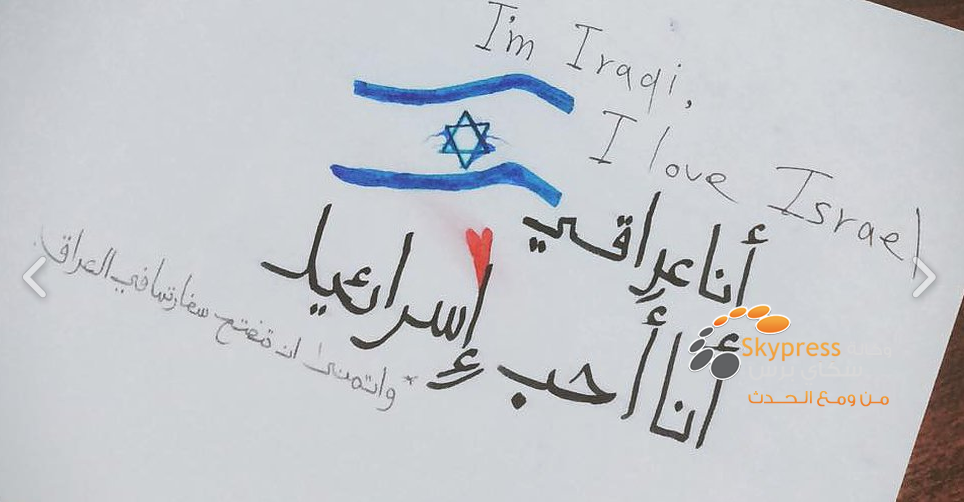 I'm Iraqi,
I love Israel
أنا عراقي
أنا أحب إسرائيل
*واتمنى ان تفتح سفارتها في العراق.
Skypress
وكالة
سكاي برس
من ومع الحدث